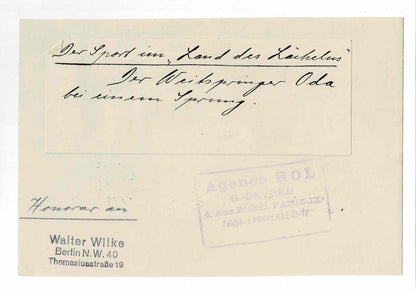 Der Sport im „Land des Lächelns"
Der Weitspringer Oda
bei einem Sprung.
Agence ROL
G. DEVRED
4, Rue Richer, PARIS-IXᵉ
Téléph. : PROVENCE
Honorar an
Walter Wilke
Berlin N.W. 40
Thomasiusstraße 19